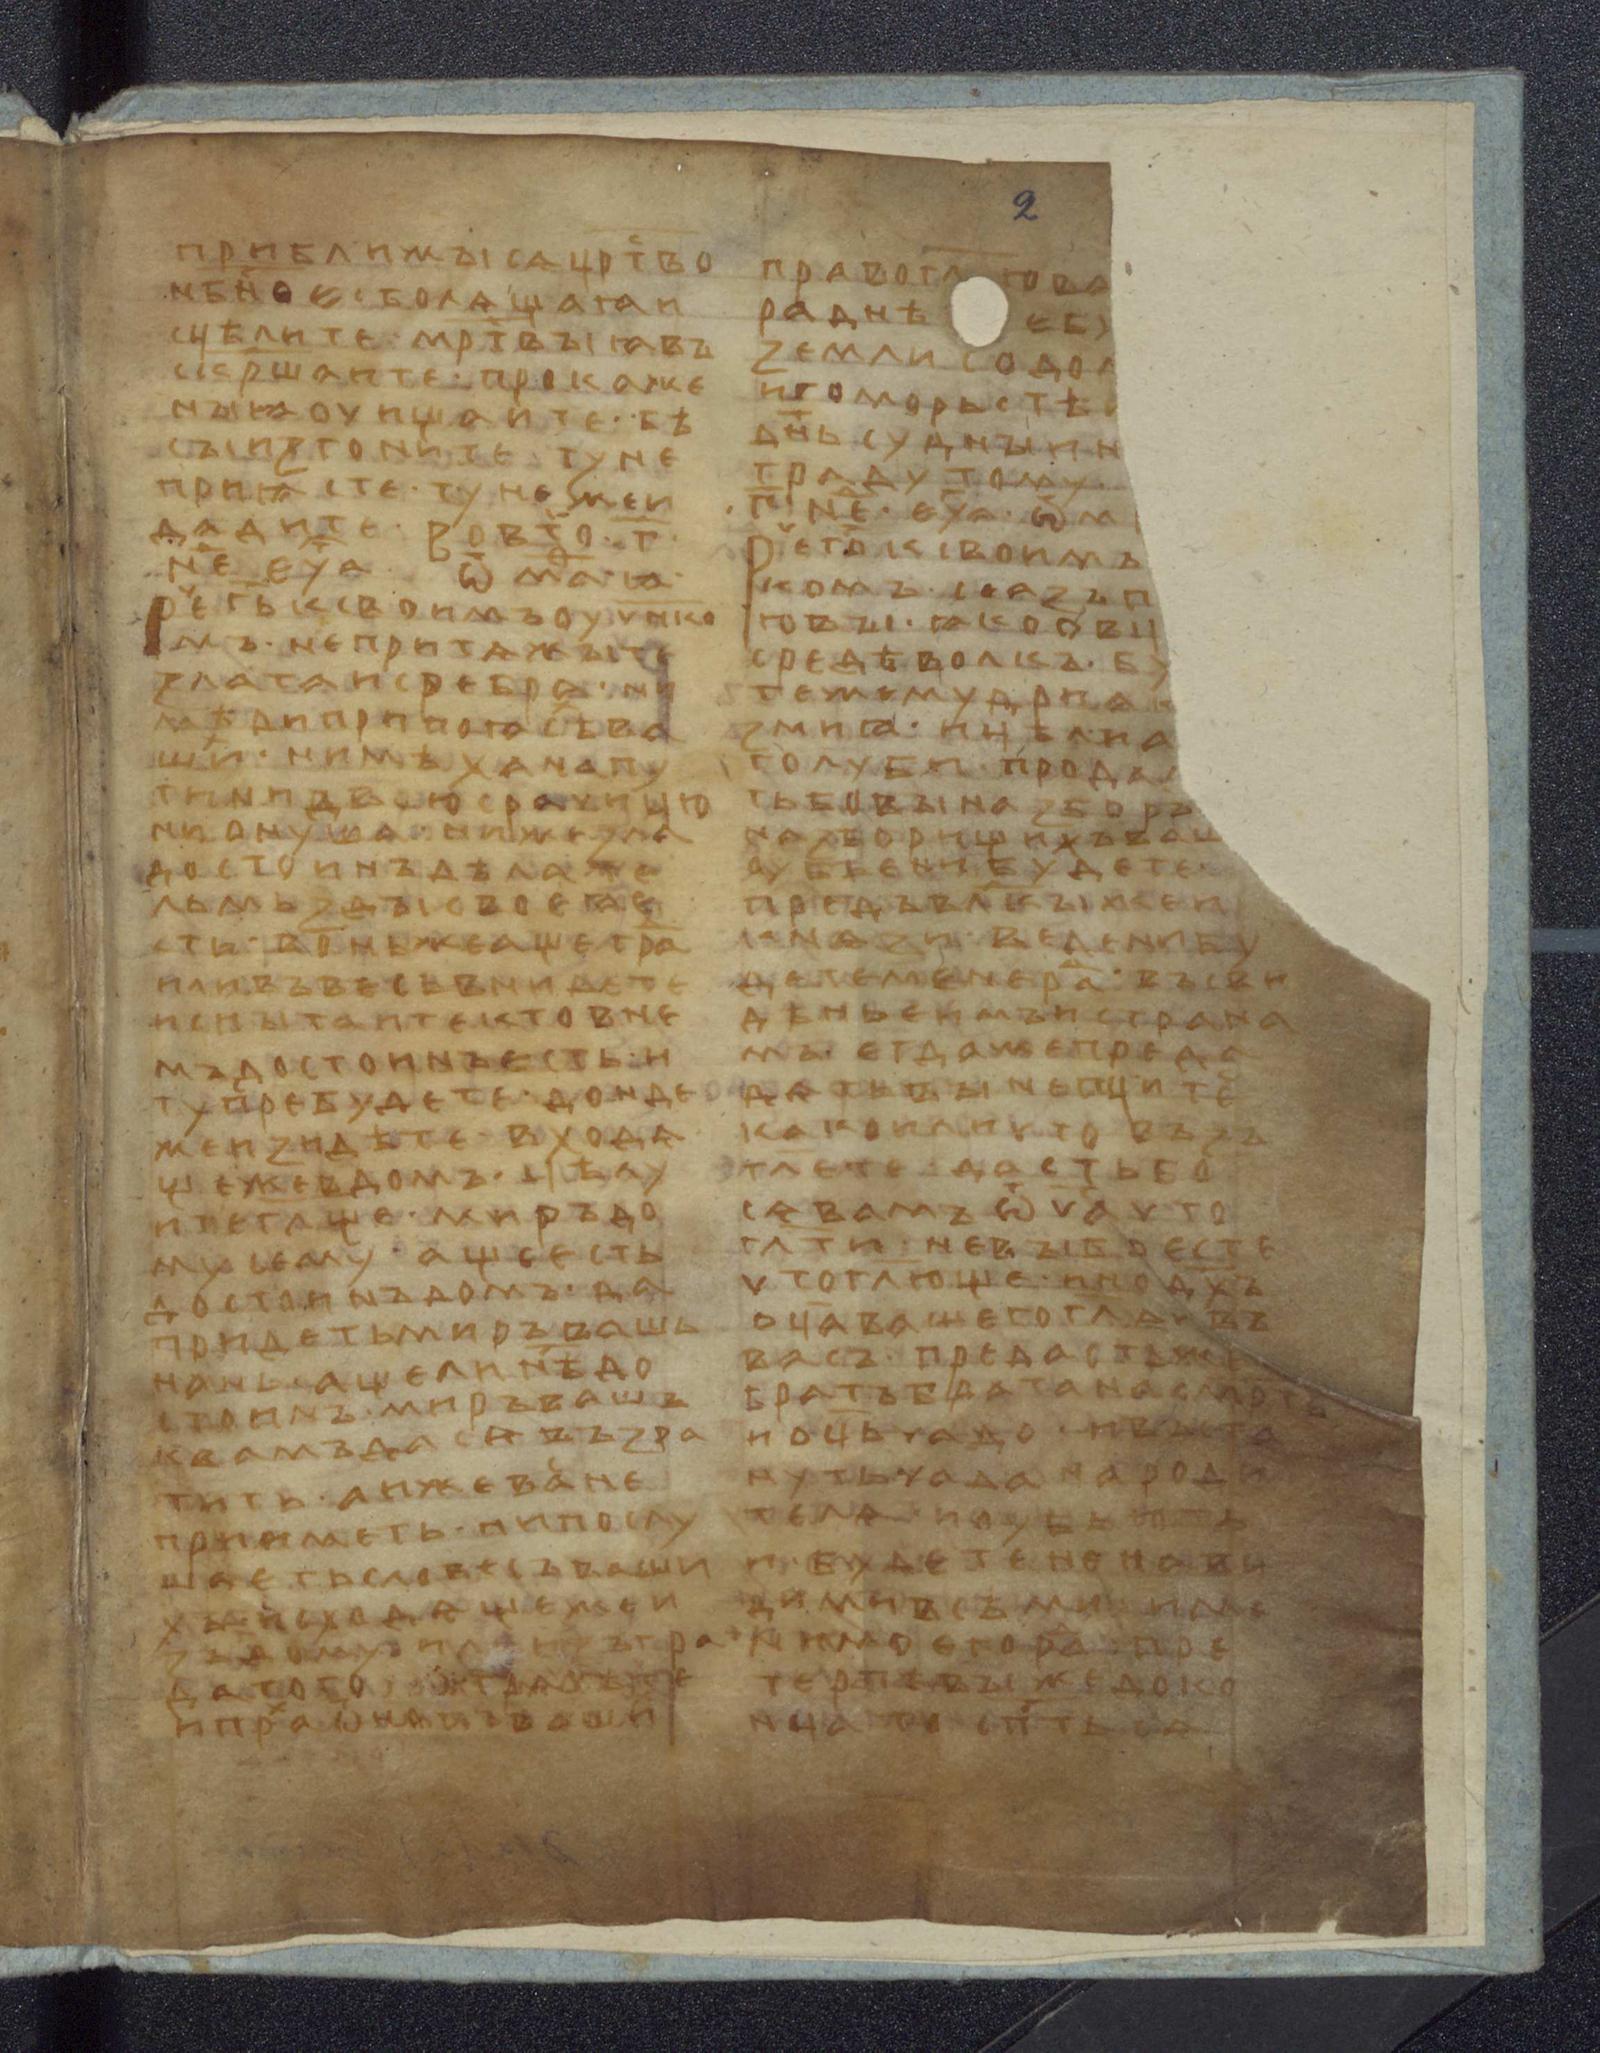 2
приближыся црⷭ҇тво
нбⷭ҇ное · болящая и
сцѣлите · мрⷮ҇выя въ
скршаите · прокаже
ныя оуищаите · бѣ
сы изгоните · туне
приясте · туне же и
дадите · в овтоⷬ҇ · г҃ ·
неⷣ҇ еуⷢ҇а ѿ маⷴ҇ · ꙗ ·
Реⷱ҇ гь к своимъ оучнко
мъ · не притяжыте
злата ни сребра · ни
мѣди при поясѣ ва
ши · ни мѣха на пу
ти ни двою срачицю
ни онуща · ни жезла
достоинъ дѣлате
ль мьзды своея е
сть · вонь же аще граⷣ
или въ весь внидете
испытаите кто в не
мь достоинъ есть · и
ту пребудете · донде
же изидѣте · входя
ще же в домъ · цѣлу
ите г҃люще · миръ до
му сему · аще есть
достоинъ домъ · да
придеть миръ вашь
нань · аще ли нѣ до
стоинъ · миръ вашъ
к вамъ да ся възра
тить · а иже ваⷭ҇ не
прииметь · ни послу
шаеть словесъ ваши
хъ исходяще же и
зъ дому или изъ гра
да того оттрясѣте
и праⷯ҇ ѿ ногъ ваши
право г҃л ю ва
раднѣ ебу
земли содом
и гоморьстѣи
дн҃ь судныи н
граду тому ·
г҃ · неⷣ҇ · еуⷢ҇а · ѿ м
Реⷱ҇ гь к своимъ
комъ · се азъ п
ю вы · яко овц
средѣ волкъ · бу
те же мудри як
змия · и цѣли я
голуби · преда
ть бо вы на зборъ
на зборищихъ ваш
оубьени будете ·
предъ влⷣкы же и
князи · ведени бу
дете мене раⷣ · въ сви
дѣнье имъ и страна
мъ · егда же преда
дать вы не пцитеⷭ҇
како или что въз
глете · дасть бо
ся вамъ ѿ чⷭ҇а что
глти · не вы бо есте
что глюще · но дхъ
оца вашего гла въ
васъ · предасть же
братъ брата на смрть
и оць чадо · и въста
нуть чада на роди
теля · и оубьють
и · будете ненави
дими всѣми · име
ни моего раⷣ · пре
терпѣвы же до ко
нца то спⷭ҇ть ся